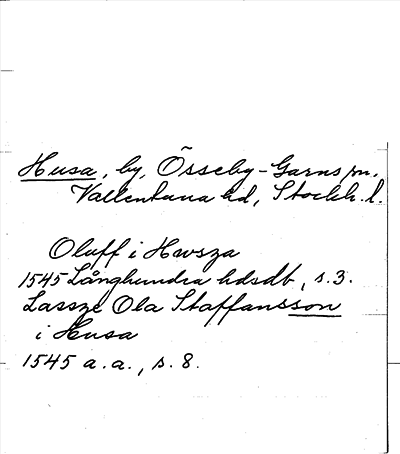 Husa, by, Össeby-Garns sn.
Vallentuna hd, Stockh. l.
Oluff i Hwsza
1545 Långhundra hdsdb, s. 3.
Lassze Ola Staffansson
i Husa
1545 a. a., s. 8.